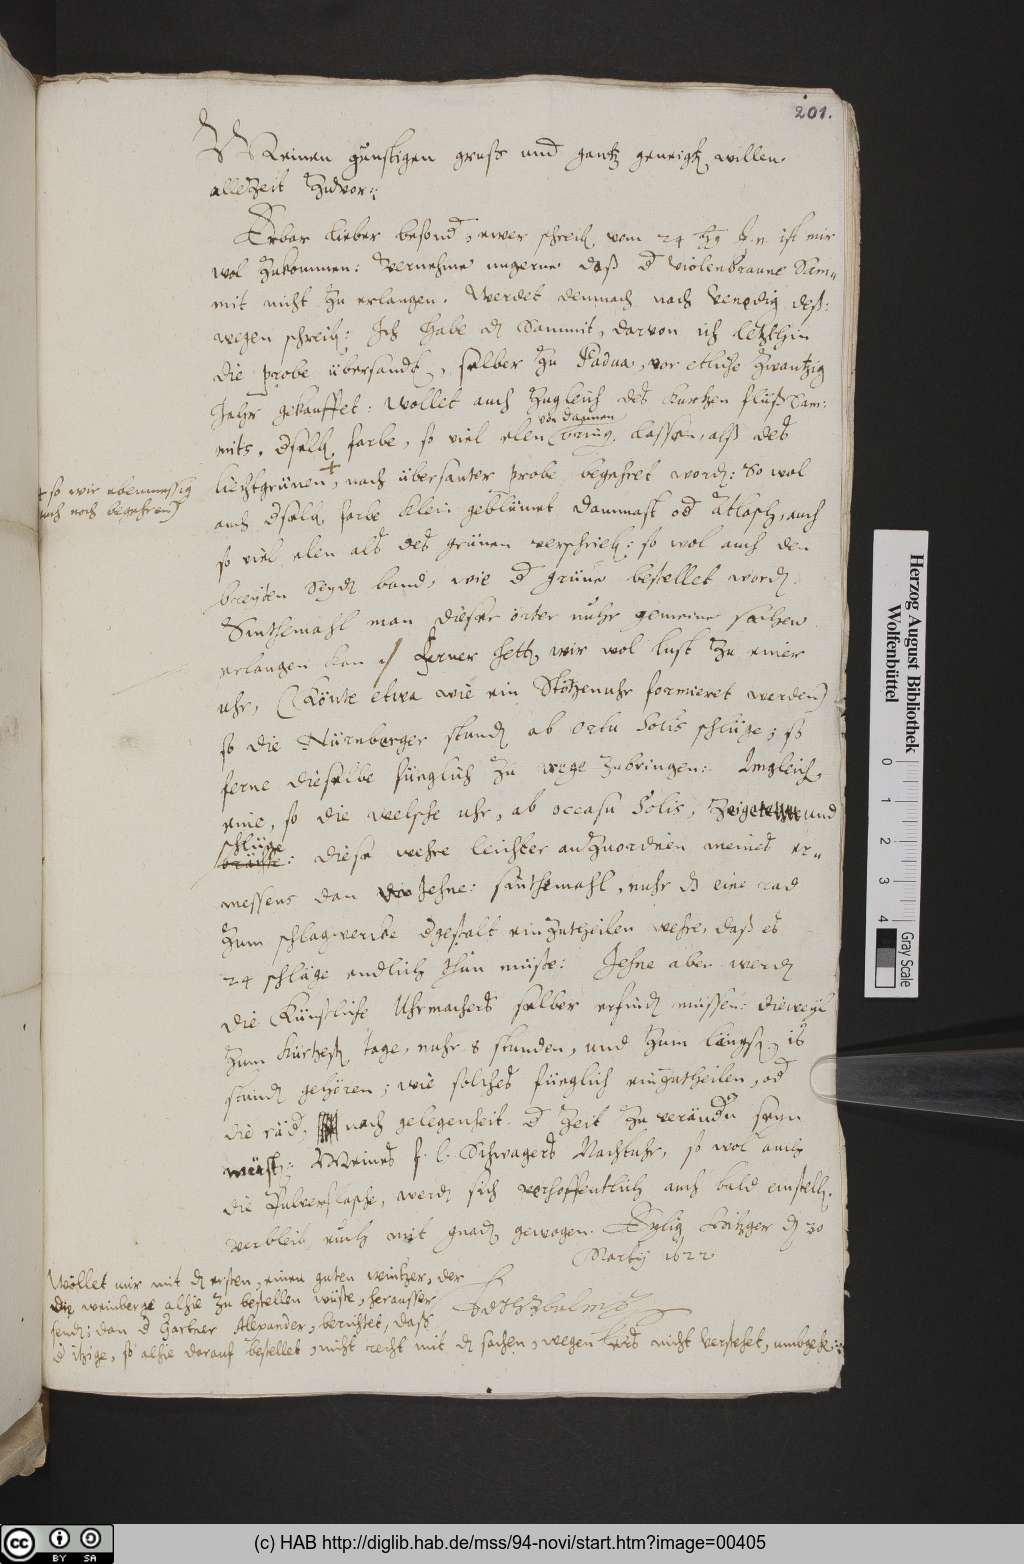 201.
Meinen günstigen gruß und gantz geneigtt willen
alletzeit zuvor:
Erbar lieber besond, ewer schreib vom 24 ist mir
wol zukommen: Vernehme ungerne daß d Violenbraune Sam-
mit nicht zu erlangen. Werdet demnach nach Venedig deß-
wegen schreib: Ich habe d Sammit, darvon ich letzthin
die probe übersandt, selber zu Padua, vor etliche zwantzig
Jahr gekauffet: Wollet auch zugleich des kurtzen Sam-
mits, farbe, so viel elen von dannen bring lassen, alß des
liechtgrünen, nach übersanter probe begehret word: So wol
+ so wir ebenmessig
auch noch begehren)
auch farbe klein geblümet dammast od Atlasch, auch
so viel elen als des grünen verschrieb: so wol auch den
breyten Seyd band, wie d grüne bestellet word.
Sinthemahl man dieser örter nuhr gemeine sachen
erlangen kan // Ferner hett wir wol lust zu einer
uhr, (könte etwa wie ein Stötzenuhr formieret werden)
so die Nürnberger stund ab ortu Solis schlüge; so
ferne dieselbe füeglich zu wege zubringen: Imgleich
eine, so die welsche uhr, ab occasu Solis, zeigete und
schlüge
: diese wehre leichter anzuordnen meines er-
messens dan Jehne: sinthemahl, nuhr d eine rad
zum schlagwerke dgestalt einzutheilen wehre, daß es
24 schläge endlich thun müste: Jehne aber werd
die Künstliche Uhrmachers selber erfind müssen: dieweyl
zum kürtzest tage, nuhr 8 stunden, und zum längst 16
stund gehören; wie solches füeglich einzutheilen, od
die räd, nach gelegenheit d Zeit zu verändn seyn
müst: Meines f. l. Schwagers Nachtuhr, so wol auch
die Pulverflasche, werd sich verhoffentlich auch bald einstell.
verbleib euch mit gnad gewogen. Eylig d 30
Martij 1622
Wollet mir mit d ersten, einen guten wintzer, der
die weinberge alhie zu bestellen wüste, heraußer
send: dan d Gartner Alexander, berichtet, daß
d itzige, so alhie darauf bestellet, nicht recht mit d sachen, wegen nicht verstehet, umbgehe:
Herzog August Bibliothek
Wolfenbüttel
0 1 2 3 4
Gray Scale
cc BY SA
(c) HAB http://diglib.hab.de/mss/94-novi/start.htm?image=00405